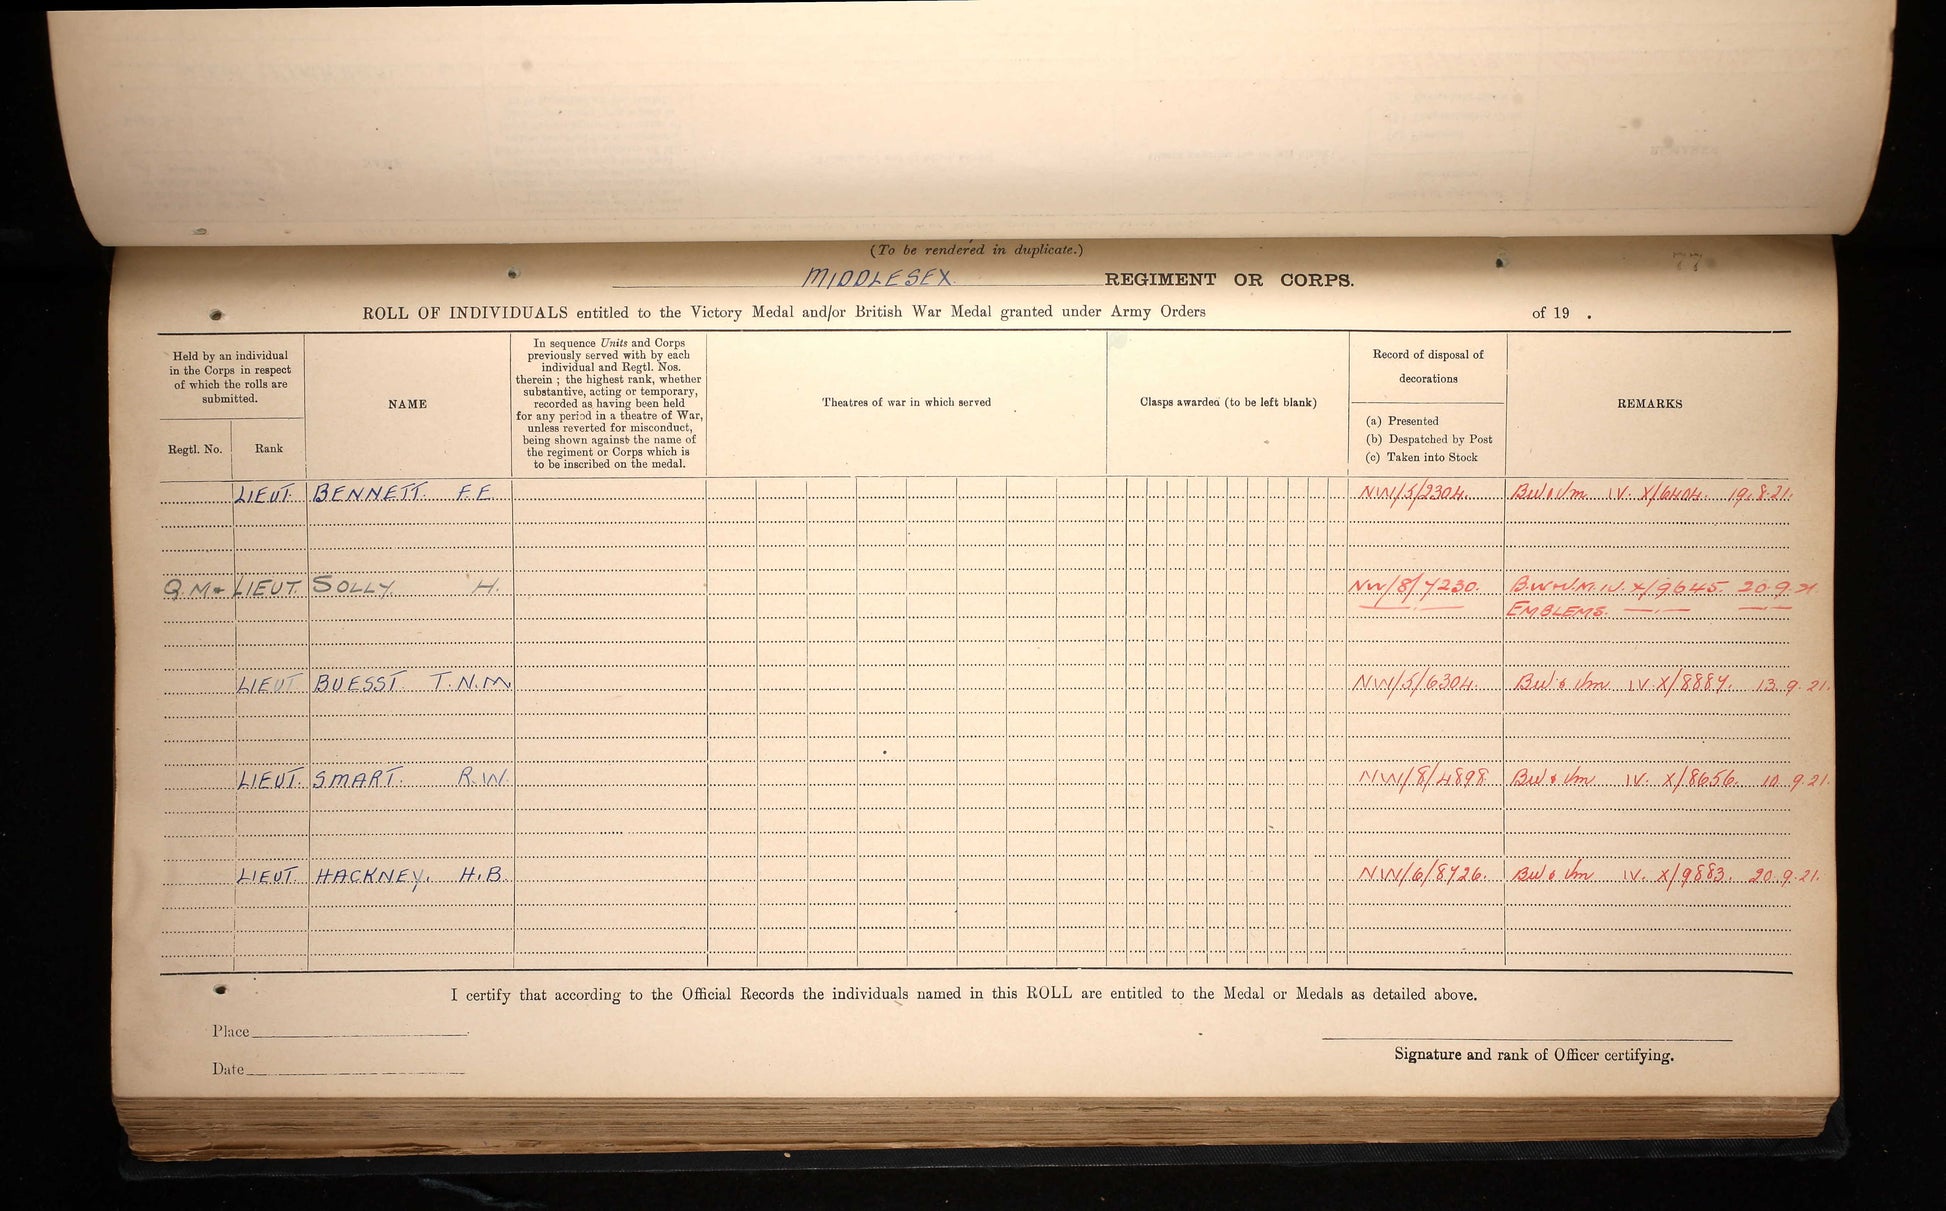 (To be rendered in duplicate.)
MIDDLESEX REGIMENT OR CORPS.
ROLL OF INDIVIDUALS entitled to the Victory Medal and/or British War Medal granted under Army Orders of 19 .
Held by an individual
in the Corps in respect
of which the rolls are
submitted.
Regtl. No. Rank
NAME
In sequence Units and Corps
previously served with by each
individual and Regtl. Nos.
therein ; the highest rank, whether
substantive, acting or temporary,
recorded as having been held
for any period in a theatre of War,
unless reverted for misconduct,
being shown against the name of
the regiment or Corps which is
to be inscribed on the medal.
Theatres of war in which served
Clasps awarded (to be left blank)
Record of disposal of
decorations
(a) Presented
(b) Despatched by Post
(c) Taken into Stock
REMARKS
LIEUT. BENNETT. F.E. NW/5/2304. BW&Vm IV. X/6404. 19.8.21.
Q.M& LIEUT. SOLLY H. NW/8/7230. B.W&V.M. IV. X/9645 20.9.21
EMBLEMS.
LIEUT BUESST. T.N.M. NW/5/6304. BW & Vm IV. X/8887. 13.9.21.
LIEUT. SMART. R.W. NW/8/4898 BW & Vm IV. X/8656. 10.9.21.
LIEUT. HACKNEY. H.B. NW/6/8726. BW & Vm IV. X/9883. 20.9.21.
I certify that according to the Official Records the individuals named in this ROLL are entitled to the Medal or Medals as detailed above.
Place
Date
Signature and rank of Officer certifying.